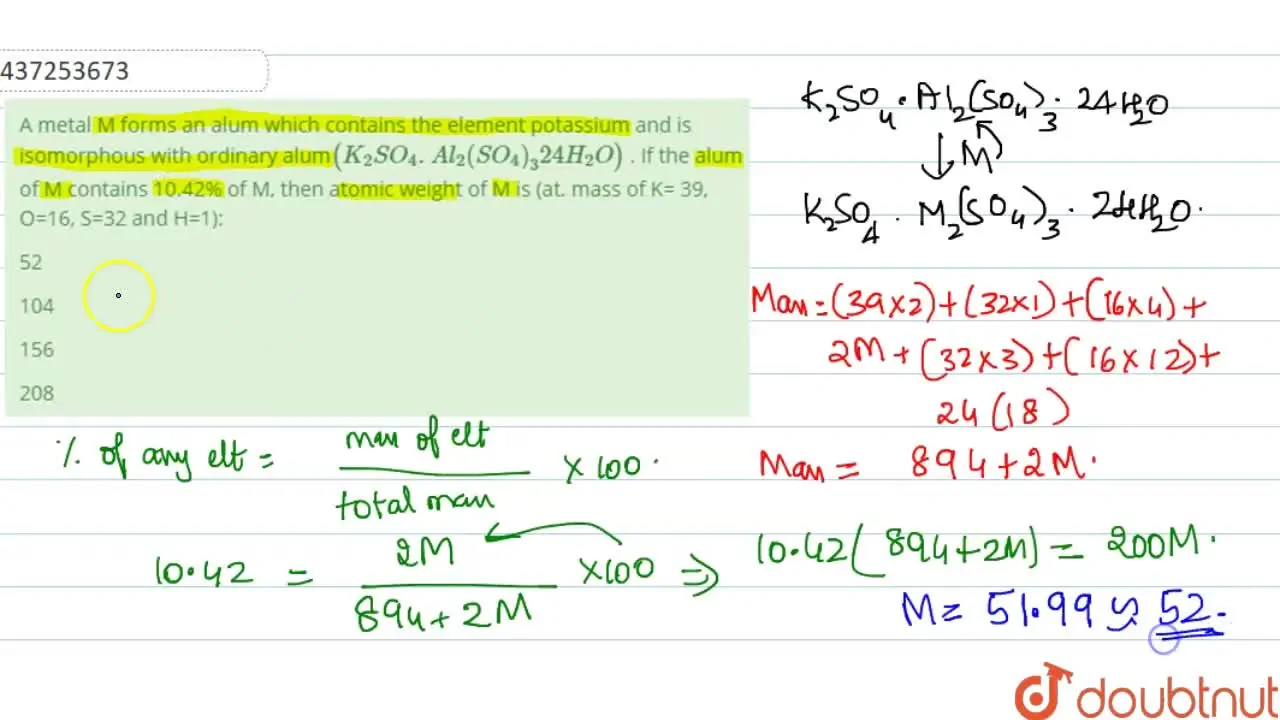 437253673
A metal M forms an alum which contains the element potassium and is
isomorphous with ordinary alum (K₂SO₄. Al₂(SO₄)₃24H₂O) . If the alum
of M contains 10.42% of M, then atomic weight of M is (at. mass of K= 39,
O=16, S=32 and H=1):
52
104
156
208
K₂SO₄ · Al₂(SO₄)₃ · 24H₂O
↓ M
K₂SO₄ · M₂(SO₄)₃ · 24H₂O·
Mass = (39×2)+(32×1)+(16×4)+
2M+(32×3)+(16×12)+
24(18)
Mass = 894+2M·
% of any elt = mass of elt / total mass × 100 ·
10.42 = 2M / 894+2M ×100 ⇒ 10.42(894+2M) = 200M·
M= 51.99 ≃ 52.
doubtnut